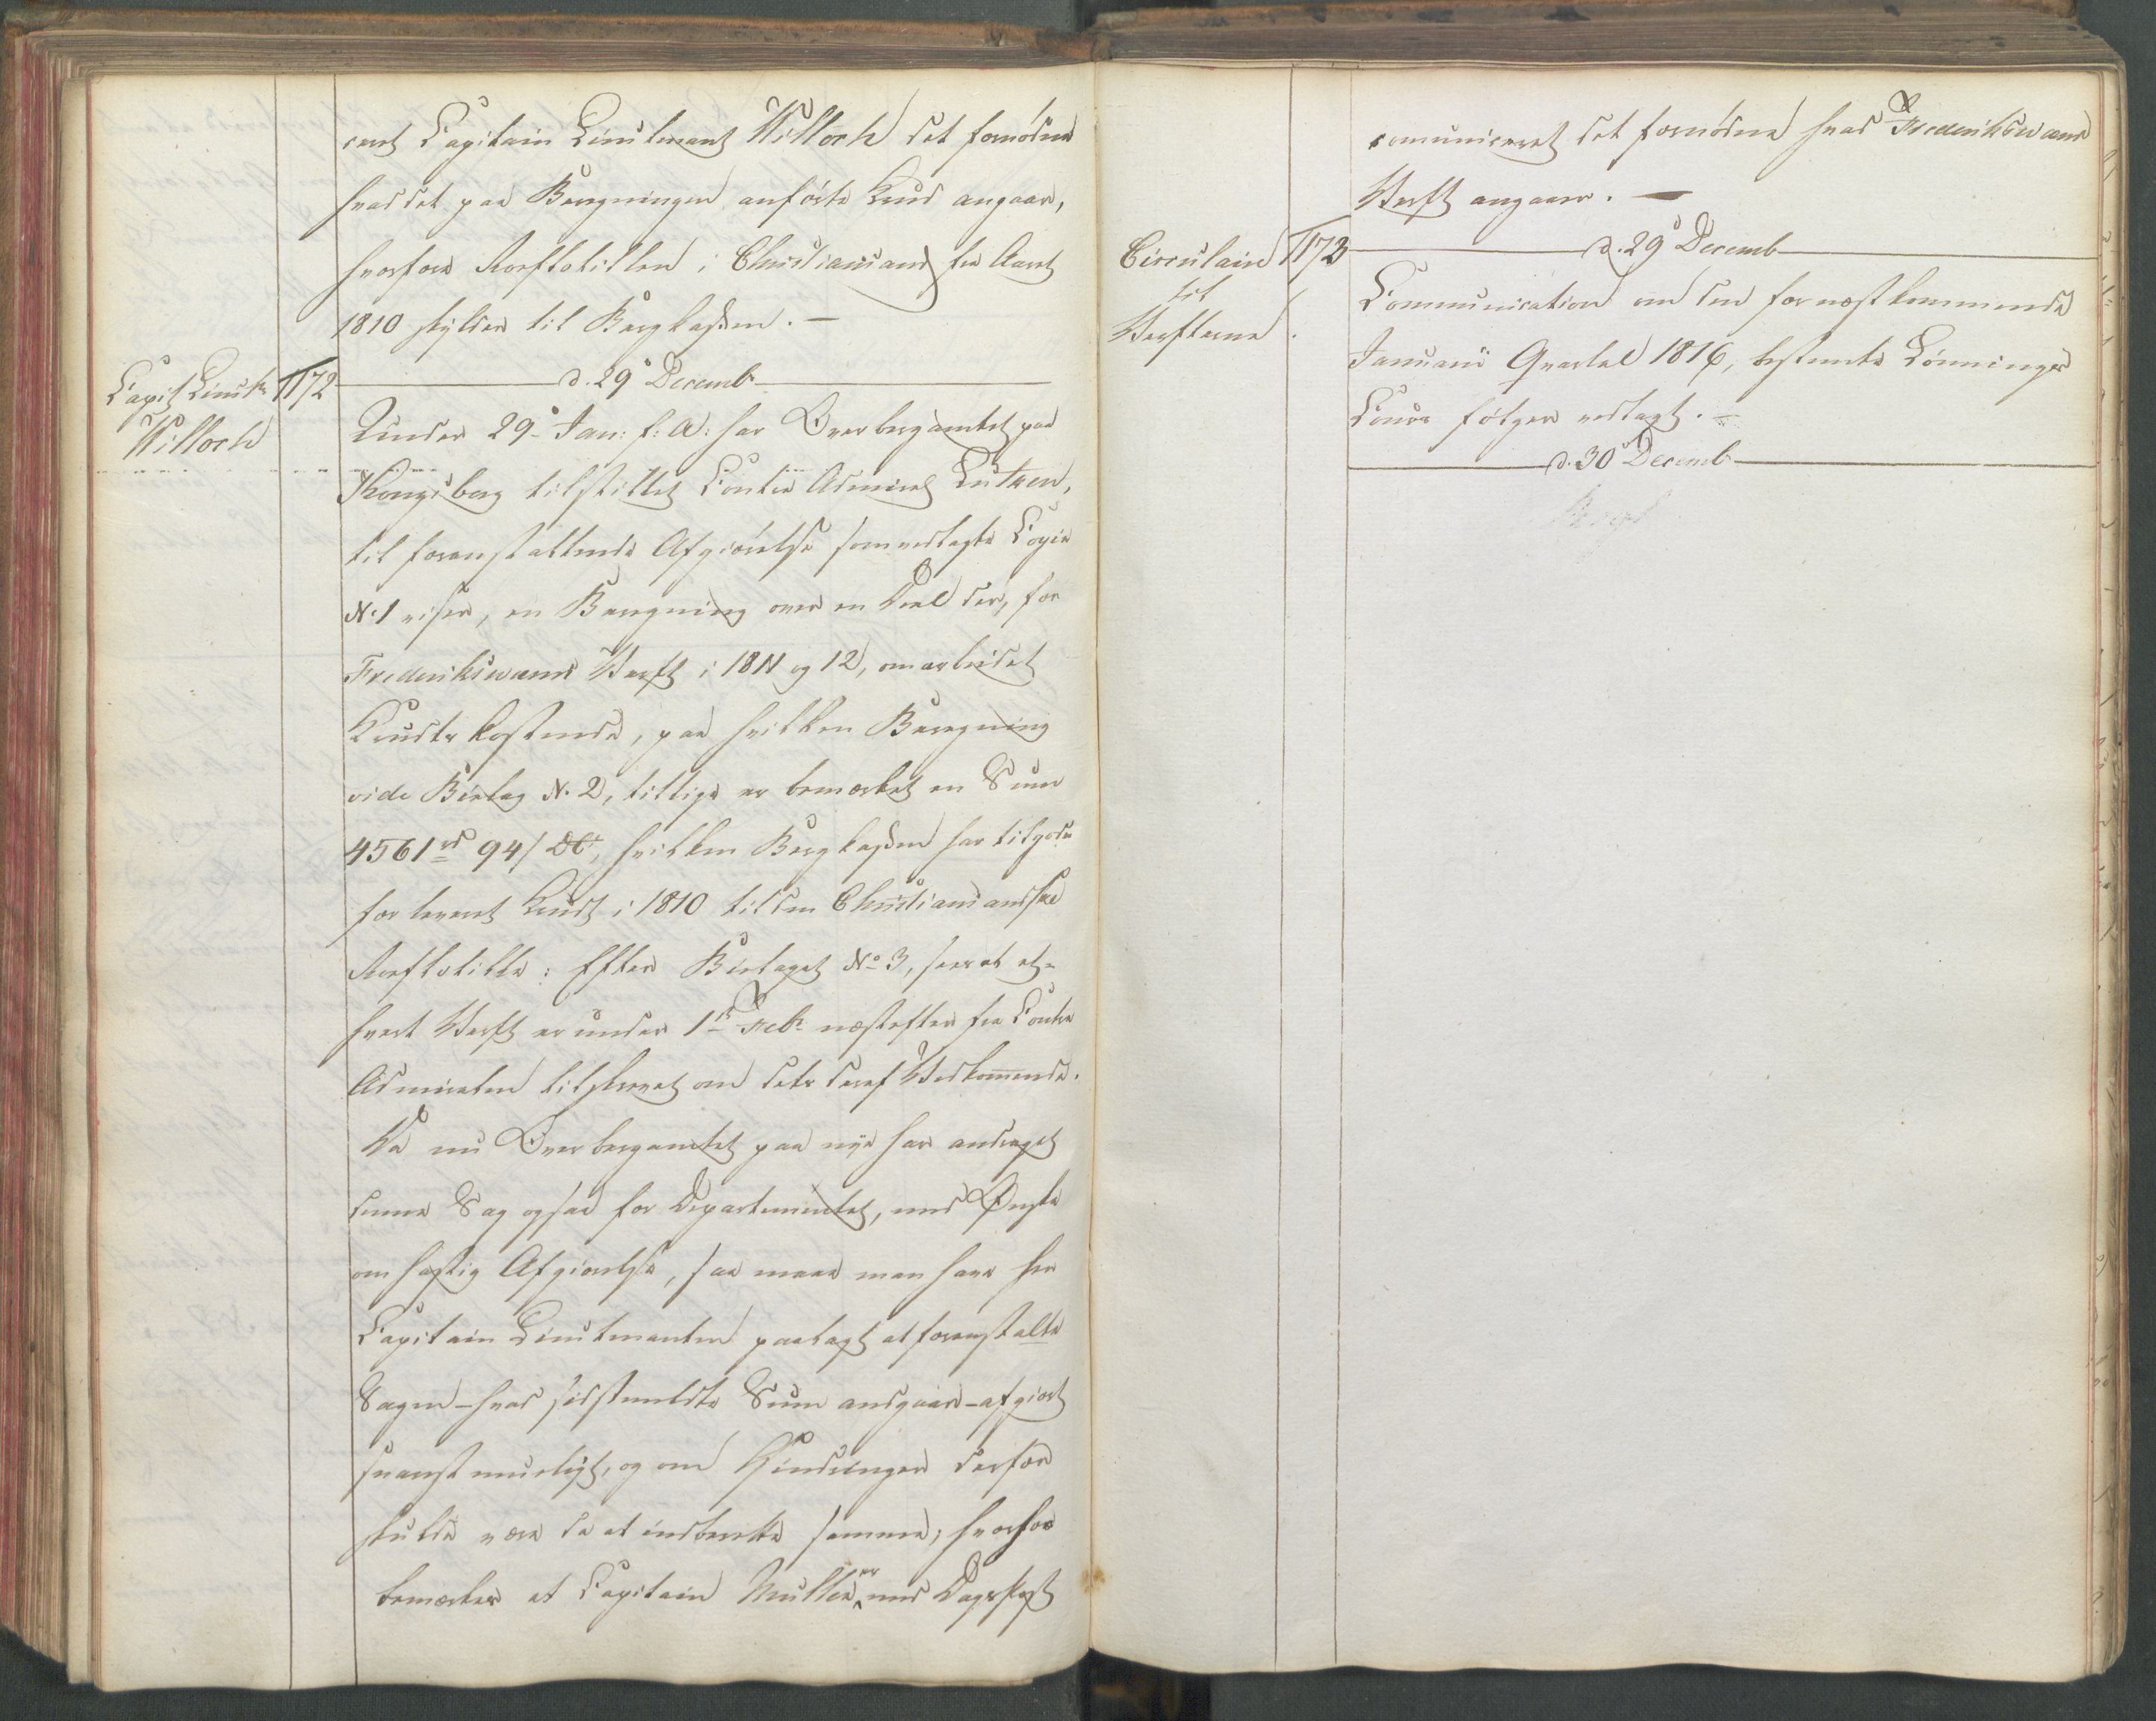 ceret Capitain Lieutenant Willoch det fornødne
hvad det paa Beregningen anførte Krud angaaer,
hvorfore Roeflotillen i Christiansand fra Aaret
1810 skylder til Bergkassen. —
Capit Lieut:
Willoch
1172
d. 29 Decembr
Under 29. Jan: f: A: har Overbergamtet paa
Kongsberg tilstillet Contra Admiral Lutken,
til foranstaltende Afgiørelse som vedlagte Copie
No 1 viser, en Beregning over en Deel der, for
Frederiksværns Værft i 1811 og 12, omarbeidet
Krudts kostende, paa hvilken Beregning
vide Bielag No 2, tillige er bemærket en Sum
4561 rd 94 s DC, hvilken Bergkassen har tilgode
for leveret Krudt i 1810 til den Christiansandske
Roeflotille: Efter Bielaget No 3, seer at et-
hvert Værft er under 1ste Febr næstefter fra Contra
Admiralen tilskrevet om dets deraf Vedkommende.
Da nu Overbergamtet paa nye har andraget
denne Sag ogsaa for Departementet, med Ønske
om hastig Afgiørelse, saa maae man have Hr
Capitain Lieutenanten paalagt at foranstalte
Sagen – hvad sidstmeldte Sum angaaer – afgiort
snarest mueligt, og om Hindringer derfor
skulde være da at indberette samme; hvorhos
bemærkes at Capitain Muller er med Dagspost
comuniceret det fornødne hvad Frederiksværns
Værft angaaer. —
Circulaire
til
Værfterne
1173
d. 29 Decemb
Communication om den for næstkommende
Januarii Qvartal 1816, bestemte Lønnings
Cours følger vedlagt. —
d. 30 Decemb